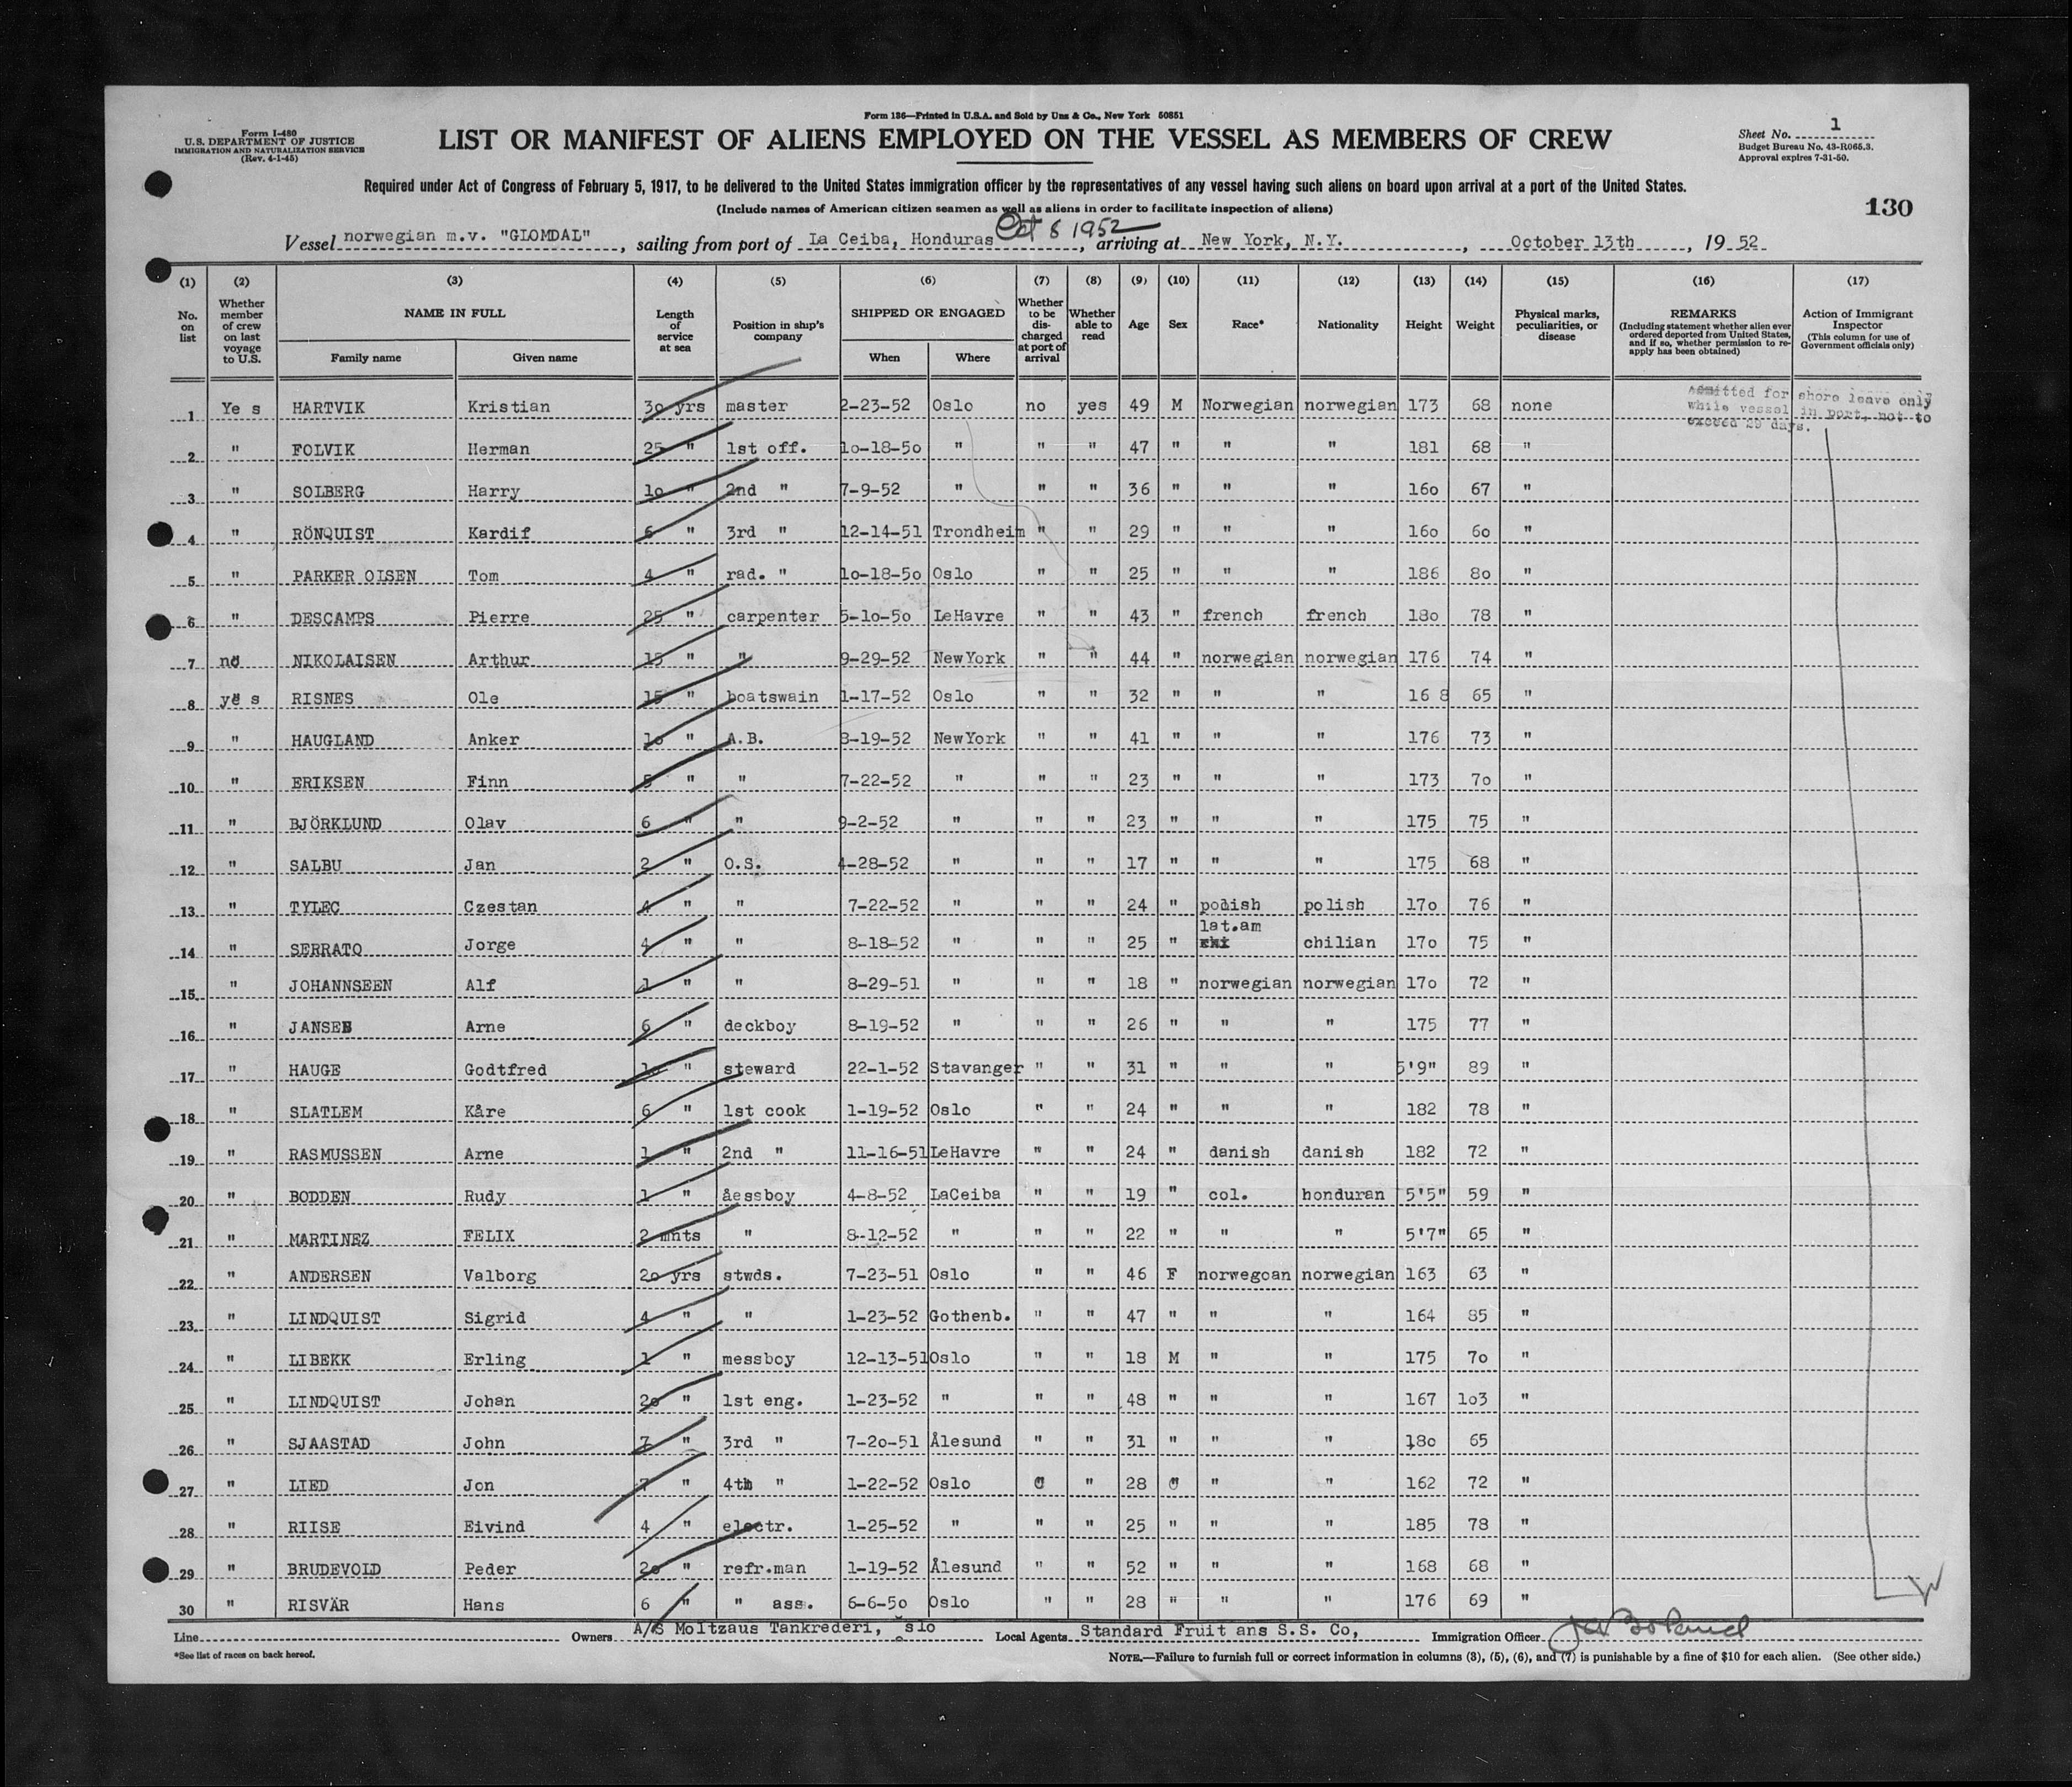 Form 136—Printed in U.S.A. and Sold by Unz & Co., New York 50851
Form I-480
U.S. DEPARTMENT OF JUSTICE
IMMIGRATION AND NATURALIZATION SERVICE
(Rev. 4-1-45)
LIST OR MANIFEST OF ALIENS EMPLOYED ON THE VESSEL AS MEMBERS OF CREW
Sheet No. 1
Budget Bureau No. 43-R065.3.
Approval expires 7-31-50.
Required under Act of Congress of February 5, 1917, to be delivered to the United States immigration officer by the representatives of any vessel having such aliens on board upon arrival at a port of the United States.
(Include names of American citizen seamen as well as aliens in order to facilitate inspection of aliens)
130
Vessel norwegian m.v. "GLOMDAL", sailing from port of La Ceiba, Honduras Oct 8 1952, arriving at New York, N.Y., October 13th, 1952
(1) (2) (3) (4) (5) (6) (7) (8) (9) (10) (11) (12) (13) (14) (15) (16) (17)
No. on list
Whether member of crew on last voyage to U.S.
NAME IN FULL
Family name Given name
Length of service at sea
Position in ship's company
SHIPPED OR ENGAGED
When Where
Whether to be discharged at port of arrival
Whether able to read
Age
Sex
Race*
Nationality
Height
Weight
Physical marks, peculiarities, or disease
REMARKS
(Including statement whether alien ever ordered deported from United States, and if so, whether permission to re-apply has been obtained)
Action of Immigrant Inspector
(This column for use of Government officials only)
Admitted for shore leave only
while vessel in port, not to
exceed 29 days.
1 Ye s HARTVIK Kristian 3o yrs master 2-23-52 Oslo no yes 49 M Norwegian norwegian 173 68 none
2 " FOLVIK Herman 25 " 1st off. 1o-18-5o " " " 47 " " " 181 68 "
3 " SOLBERG Harry 1o " 2nd " 7-9-52 " " " 36 " " " 16o 67 "
4 " RÖNQUIST Kardif 6 " 3rd " 12-14-51 Trondheim " " 29 " " " 16o 6o "
5 " PARKER OLSEN Tom 4 " rad. " 1o-18-5o Oslo " " 25 " " " 186 8o "
6 " DESCAMPS Pierre 25 " carpenter 5-1o-5o LeHavre " " 43 " french french 18o 78 "
7 no NIKOLAISEN Arthur 15 " " 9-29-52 NewYork " " 44 " norwegian norwegian 176 74 "
8 ye s RISNES Ole 15 " boatswain 1-17-52 Oslo " " 32 " " " 16 8 65 "
9 " HAUGLAND Anker 1o " A.B. 3-19-52 NewYork " " 41 " " " 176 73 "
10 " ERIKSEN Finn 5 " " 7-22-52 " " " 23 " " " 173 7o "
11 " BJÖRKLUND Olav 6 " " 9-2-52 " " " 23 " " " 175 75 "
12 " SALBU Jan 2 " O.S. 4-28-52 " " " 17 " " " 175 68 "
13 " TYLEC Czestan 4 " " 7-22-52 " " " 24 " polish polish 17o 76 "
lat.am
14 " SERRATO Jorge 4 " " 8-18-52 " " " 25 " chilian 17o 75 "
15 " JOHANNSEEN Alf 1 " " 8-29-51 " " " 18 " norwegian norwegian 17o 72 "
16 " JANSEN Arne 6 " deckboy 8-19-52 " " " 26 " " " 175 77 "
17 " HAUGE Godtfred 1o " steward 22-1-52 Stavanger " " 31 " " " 5'9" 89 "
18 " SLATLEM Kåre 6 " 1st cook 1-19-52 Oslo " " 24 " " " 182 78 "
19 " RASMUSSEN Arne 1 " 2nd " 11-16-51 LeHavre " " 24 " danish danish 182 72 "
20 " BODDEN Rudy 1 " åessboy 4-8-52 LaCeiba " " 19 " col. honduran 5'5" 59 "
21 " MARTINEZ FELIX 2 mnts " 8-12-52 " " " 22 " " " 5'7" 65 "
22 " ANDERSEN Valborg 2o yrs stwds. 7-23-51 Oslo " " 46 F norwegoan norwegian 163 63 "
23 " LINDQUIST Sigrid 4 " " 1-23-52 Gothenb. " " 47 " " " 164 85 "
24 " LIBEKK Erling 1 " messboy 12-13-51 Oslo " " 18 M " " 175 7o "
25 " LINDQUIST Johan 2o " 1st eng. 1-23-52 " " " 48 " " " 167 1o3 "
26 " SJAASTAD John 7 " 3rd " 7-2o-51 Ålesund " " 31 " " " 18o 65 "
27 " LIED Jon 7 " 4th " 1-22-52 Oslo " " 28 " " " 162 72 "
28 " RIISE Eivind 4 " electr. 1-25-52 " " " 25 " " " 185 78 "
29 " BRUDEVOLD Peder 2o " refr.man 1-19-52 Ålesund " " 52 " " " 168 68 "
30 " RISVÄR Hans 6 " " ass. 6-6-5o Oslo " " 28 " " " 176 69 "
Line Owners A/S Moltzaus Tankrederi, Oslo Local Agents Standard Fruit ans S.S. Co, Immigration Officer
*See list of races on back hereof.
NOTE.—Failure to furnish full or correct information in columns (3), (5), (6), and (7) is punishable by a fine of $10 for each alien. (See other side.)